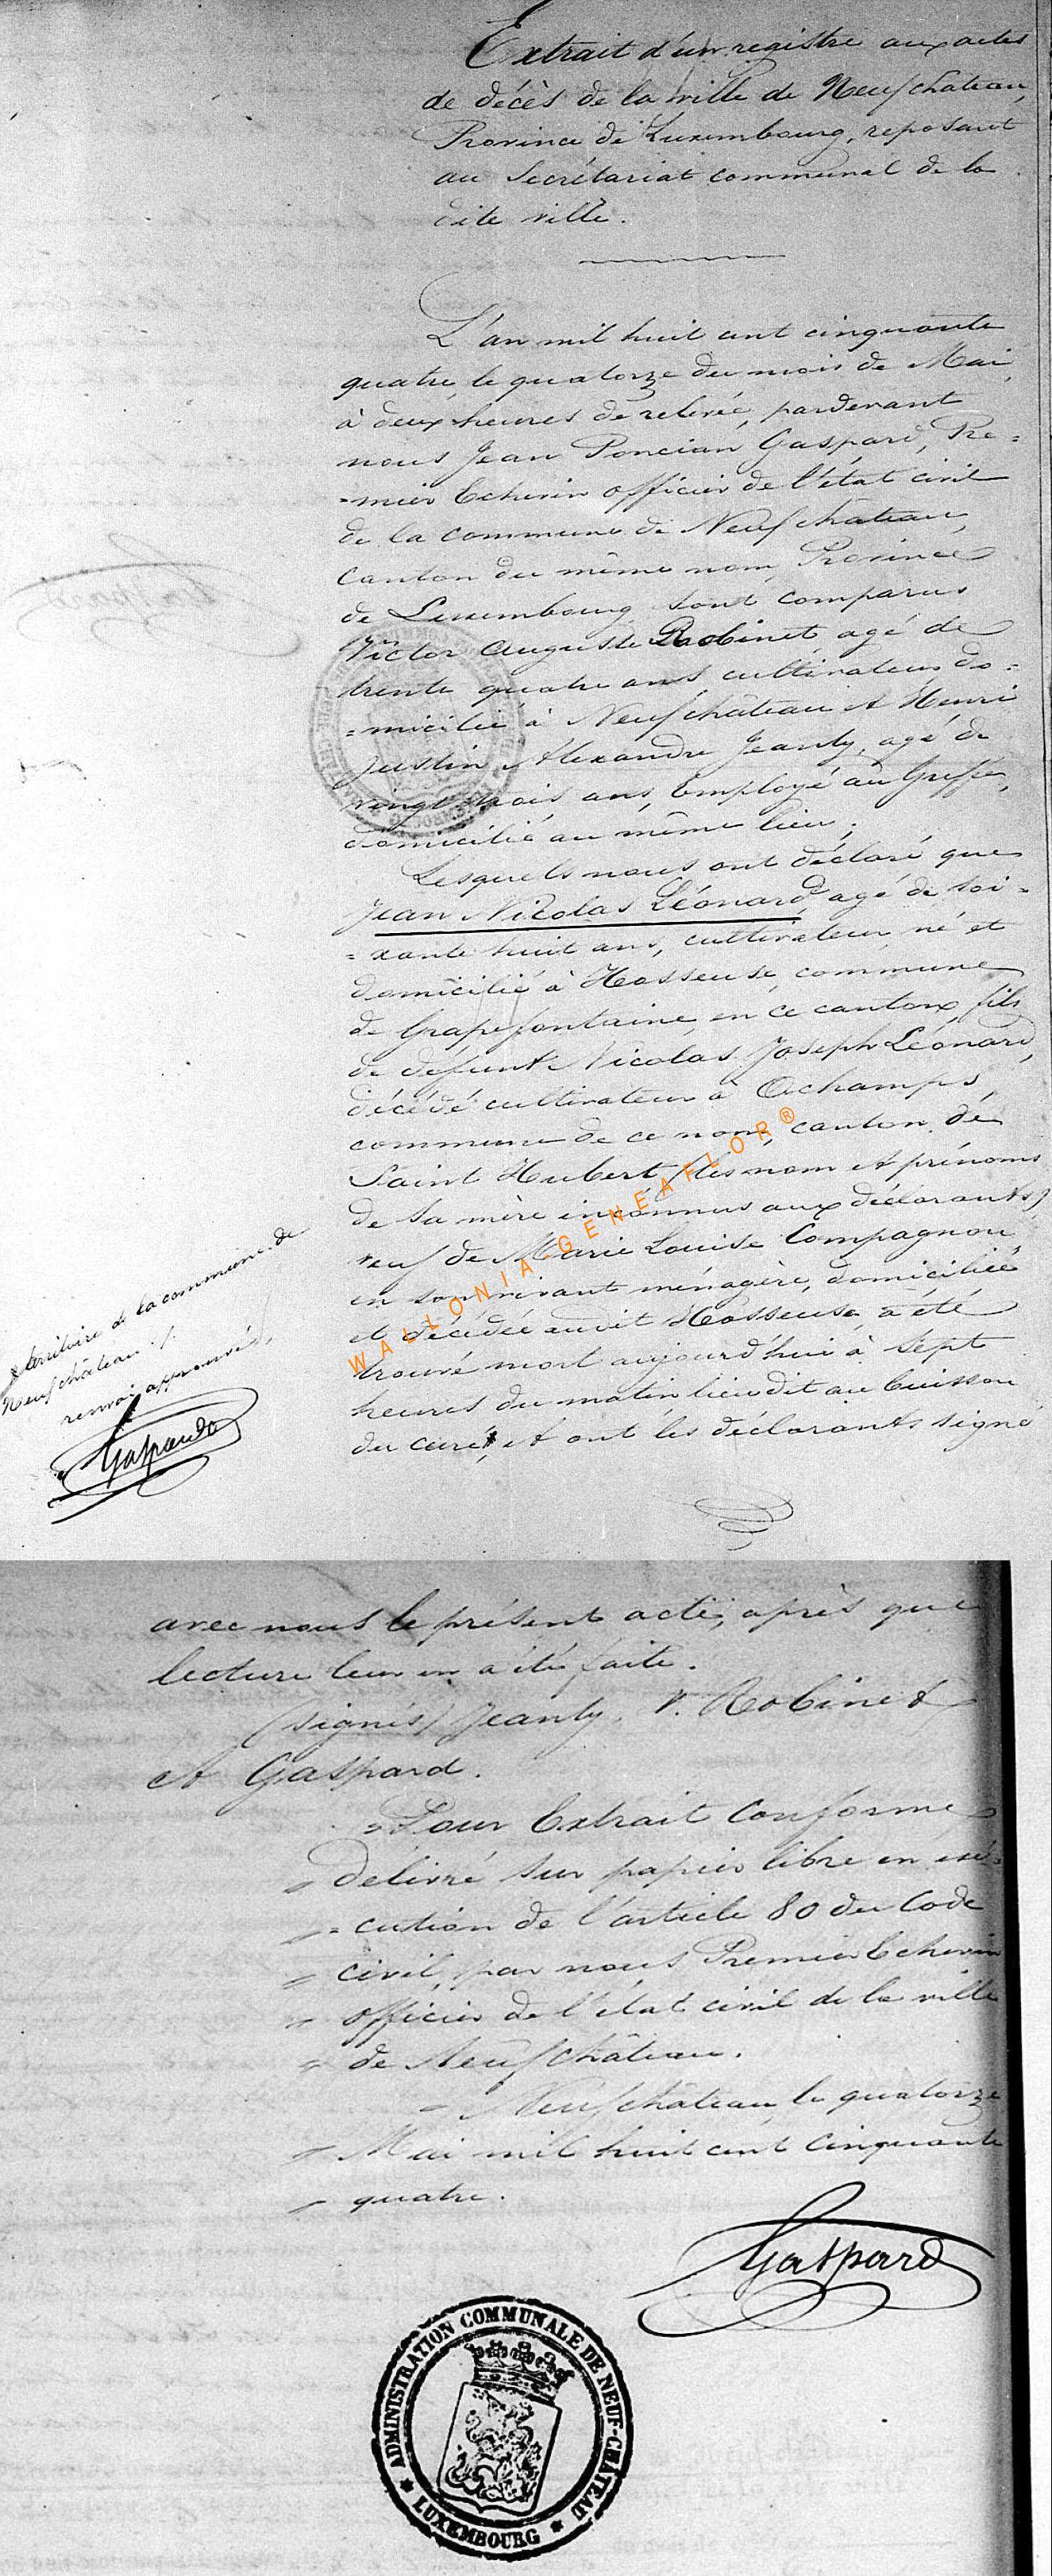 Extrait d'un registre aux actes
de décès de la ville de Neufchateau,
Province de Luxembourg, reposant
au Secrétariat communal de la
dite ville.
L'an mil huit cent cinquante
quatre, le quatorze du mois de Mai,
à deux heures de relevée, pardevant
nous Jean Poncian Gaspard, Pre=
=mier Echevin officier de l'état civil
de la commune de Neufchateau,
Canton du même nom, Province
de Luxembourg sont comparus
Victor Auguste Robinet, agé de
trente quatre ans cultivateur do=
=micilié à Neufchâteau et Henri
Justin Alexandre Jeanty, agé de
vingt trois ans, Employé au Greffe,
domicilié au même lieu;
Lesquels nous ont déclaré que
Jean Nicolas Léonard, agé de soi=
=xante huit ans, cultivateur né et
domicilié à Hosseuse, commune
de Grapefontaine, en ce canton, fils
de défunt Nicolas Joseph Léonard,
décédé cultivateur à Ochamps,
commune de ce nom, canton de
Saint Hubert (les nom et prénoms
de sa mère inconnus aux déclarants)
veuf de Marie Louise Compagnon
en son vivant ménagère, domiciliée
et décédée audit Hosseuse a été
trouvé mort aujourd'hui à sept
heures du matin, lieu dit au buisson
du curé, et ont les déclarants signé
territoire de la commune de
Neufchâteau ./.
renvoi approuvé,
Gaspard
WALLONIA-GENEAFLOR®
avec nous le présent acte, après que
lecture leur en a été faite.
(signés) Jeanty, V. Robinet
et Gaspard.
Pour Extrait Conforme
délivré sur papier libre en exé=
=cution de l'article 80 du Code
civil, par nous Premier Echevin
officier de l'état civil de la ville
de Neufchâteau.
Neufchâteau, le quatorze
Mai mil huit cent Cinquante
quatre.
Gaspard
ADMINISTRATION COMMUNALE DE NEUF-CHÂTEAU
* LUXEMBOURG *